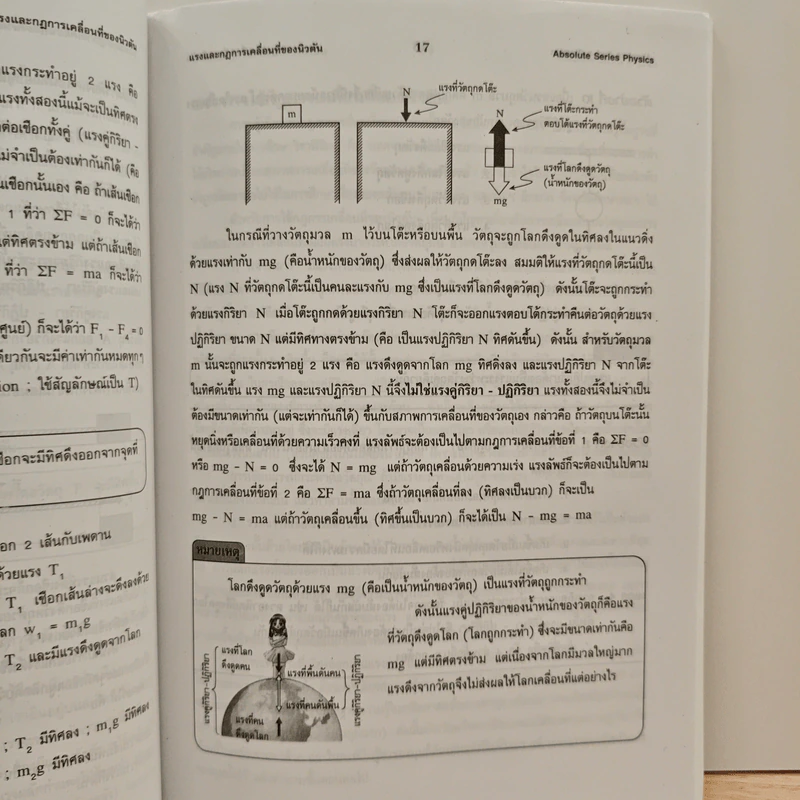 แรงและกฎการเคลื่อนที่ของนิวตัน
แรงกระทำอยู่ 2 แรง คือ
แรงทั้งสองนี้แม้จะเป็นทิศตรง
ต่อเชือกทั้งคู่ (แรงคู่กิริยา -
ไม่จำเป็นต้องเท่ากันก็ได้ (คือ
เส้นเชือกนั้นเอง คือ ถ้าเส้นเชือก
1 ที่ว่า ΣF = 0 ก็จะได้ว่า
แต่ทิศตรงข้าม แต่ถ้าเส้นเชือก
ที่ว่า ΣF = ma ก็จะได้ว่า
ศูนย์) ก็จะได้ว่า F₁ - F₄ = 0
เดียวกันจะมีค่าเท่ากันหมดทุกๆ
ion ; ใช้สัญลักษณ์เป็น T)
เชือกจะมีทิศดึงออกจากจุดที่
อก 2 เส้นกับเพดาน
ด้วยแรง T₁
T₁ เชือกเส้นล่างจะดึงลงด้วย
ลก w₁ = m₁g
T₂ และมีแรงดึงดูดจากโลก
; T₂ มีทิศลง ; m₁g มีทิศลง
; m₂g มีทิศลง
แรงและกฎการเคลื่อนที่ของนิวตัน 17 Absolute Series Physics
m
N
แรงที่วัตถุกดโต๊ะ
N
แรงที่โต๊ะกระทำ
ตอบโต้แรงที่วัตถุกดโต๊ะ
แรงที่โลกดึงดูดวัตถุ
(น้ำหนักของวัตถุ)
mg
ในกรณีที่วางวัตถุมวล m ไว้บนโต๊ะหรือบนพื้น วัตถุจะถูกโลกดึงดูดในทิศลงในแนวดิ่ง
ด้วยแรงเท่ากับ mg (คือน้ำหนักของวัตถุ) ซึ่งส่งผลให้วัตถุกดโต๊ะลง สมมติให้แรงที่วัตถุกดโต๊ะนี้เป็น
N (แรง N ที่วัตถุกดโต๊ะนี้เป็นคนละแรงกับ mg ซึ่งเป็นแรงที่โลกดึงดูดวัตถุ) ดังนั้นโต๊ะจะถูกกระทำ
ด้วยแรงกิริยา N เมื่อโต๊ะถูกกดด้วยแรงกิริยา N โต๊ะก็จะออกแรงตอบโต้กระทำคืนต่อวัตถุด้วยแรง
ปฏิกิริยา ขนาด N แต่มีทิศทางตรงข้าม (คือ เป็นแรงปฏิกิริยา N ทิศดันขึ้น) ดังนั้น สำหรับวัตถุมวล
m นั้นจะถูกแรงกระทำอยู่ 2 แรง คือ แรงดึงดูดจากโลก mg ทิศดิ่งลง และแรงปฏิกิริยา N จากโต๊ะ
ในทิศดันขึ้น แรง mg และแรงปฏิกิริยา N นี้จึงไม่ใช่แรงคู่กิริยา - ปฏิกิริยา แรงทั้งสองนี้จึงไม่จำเป็น
ต้องมีขนาดเท่ากัน (แต่จะเท่ากันก็ได้) ขึ้นกับสภาพการเคลื่อนที่ของวัตถุเอง กล่าวคือ ถ้าวัตถุบนโต๊ะนั้น
หยุดนิ่งหรือเคลื่อนที่ด้วยความเร็วคงที่ แรงลัพธ์จะต้องเป็นไปตามกฎการเคลื่อนที่ข้อที่ 1 คือ ΣF = 0
หรือ mg - N = 0 ซึ่งจะได้ N = mg แต่ถ้าวัตถุเคลื่อนด้วยความเร่ง แรงลัพธ์ก็จะต้องเป็นไปตาม
กฎการเคลื่อนที่ข้อที่ 2 คือ ΣF = ma ซึ่งถ้าวัตถุเคลื่อนที่ลง (ทิศลงเป็นบวก) ก็จะเป็น
mg - N = ma แต่ถ้าวัตถุเคลื่อนขึ้น (ทิศขึ้นเป็นบวก) ก็จะได้เป็น N - mg = ma
หมายเหตุ
โลกดึงดูดวัตถุด้วยแรง mg (คือเป็นน้ำหนักของวัตถุ) เป็นแรงที่วัตถุถูกกระทำ
ดังนั้นแรงคู่ปฏิกิริยาของน้ำหนักของวัตถุก็คือแรง
ที่วัตถุดึงดูดโลก (โลกถูกกระทำ) ซึ่งจะมีขนาดเท่ากันคือ
mg แต่มีทิศตรงข้าม แต่เนื่องจากโลกมีมวลใหญ่มาก
แรงดึงจากวัตถุจึงไม่ส่งผลให้โลกเคลื่อนที่แต่อย่างไร
แรงคู่กิริยา-ปฏิกิริยา
แรงที่โลก
ดึงดูดคน
แรงที่พื้นดันคน
แรงที่คนดันพื้น
แรงที่คน
ดึงดูดโลก
แรงคู่กิริยา-ปฏิกิริยา